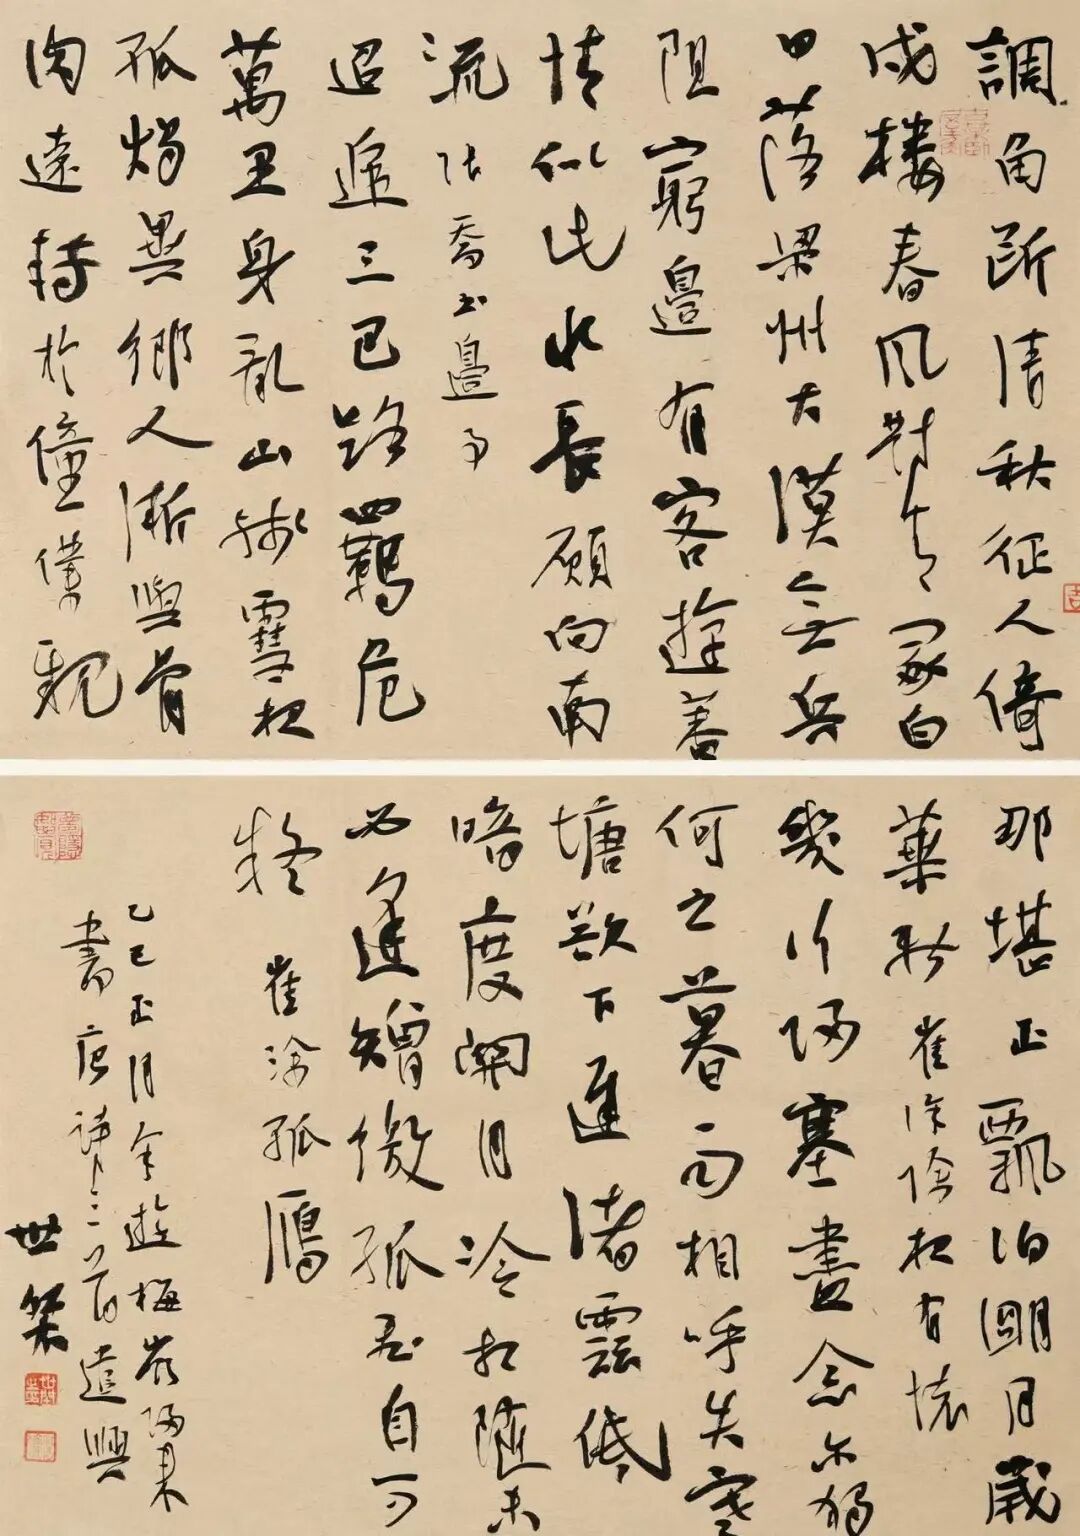 調角斷清秋征人倚
戍樓春風對青冢白
日落梁州大漠無兵
阻窮邊有客遊蕃
情似此水長願向南
流 張喬書邊事
迢遞三巴路羈危
萬里身亂山殘雪夜
孤燭異鄉人漸與骨
肉遠轉於僮僕親
那堪正飄泊明月歲
華新 崔塗除夜有懷
幾行歸塞盡念爾獨
何之暮雨相呼失寒
塘欲下遲渚雲低
暗度關月冷相隨未
必逢矰繳孤飛自可
疑 崔塗孤鴈
乙巳正月余遊梅嶺歸來
書唐詩三首遣興
世